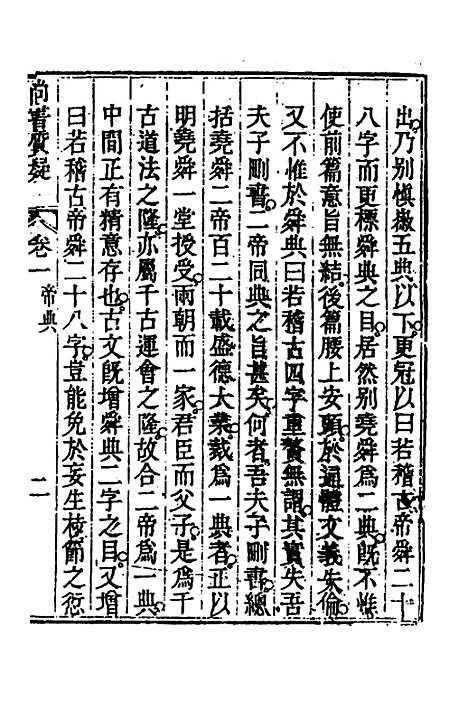 出乃別愼徽五典以下更冠以曰若稽古帝舜二十
八字而更標舜典之目居然別堯舜爲二典旣不惟
使前篇意旨無結後篇腰上安頭於通體文義失倫
又不惟於舜典曰若稽古四字重贅無謂其實失吾
夫子刪書二帝同典之旨甚矣何者吾夫子刪書總
括堯舜二帝百二十載盛德大業裁爲一典者正以
明堯舜一堂授受兩朝而一家君臣而父子是爲千
古道法之隆亦屬千古運會之隆故合二帝爲一典
中間正有精意存也古文旣增舜典二字之目又增
曰若稽古帝舜二十八字豈能免於妄生枝節之愆
尚書質疑 卷一 帝典 二